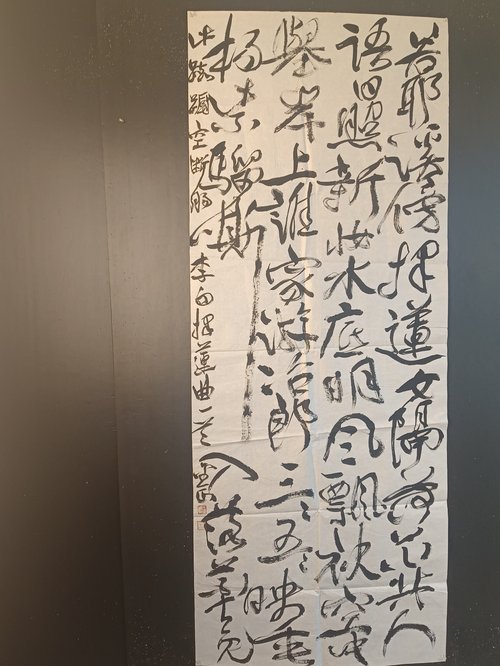 若耶溪傍採蓮女隔荷花共人
語日照新妝水底明風飄袂空
舉岸上誰家游冶郎三三五五映垂
楊紫騮嘶入落花去見
此踟躕空断腸 李白採蓮曲一首